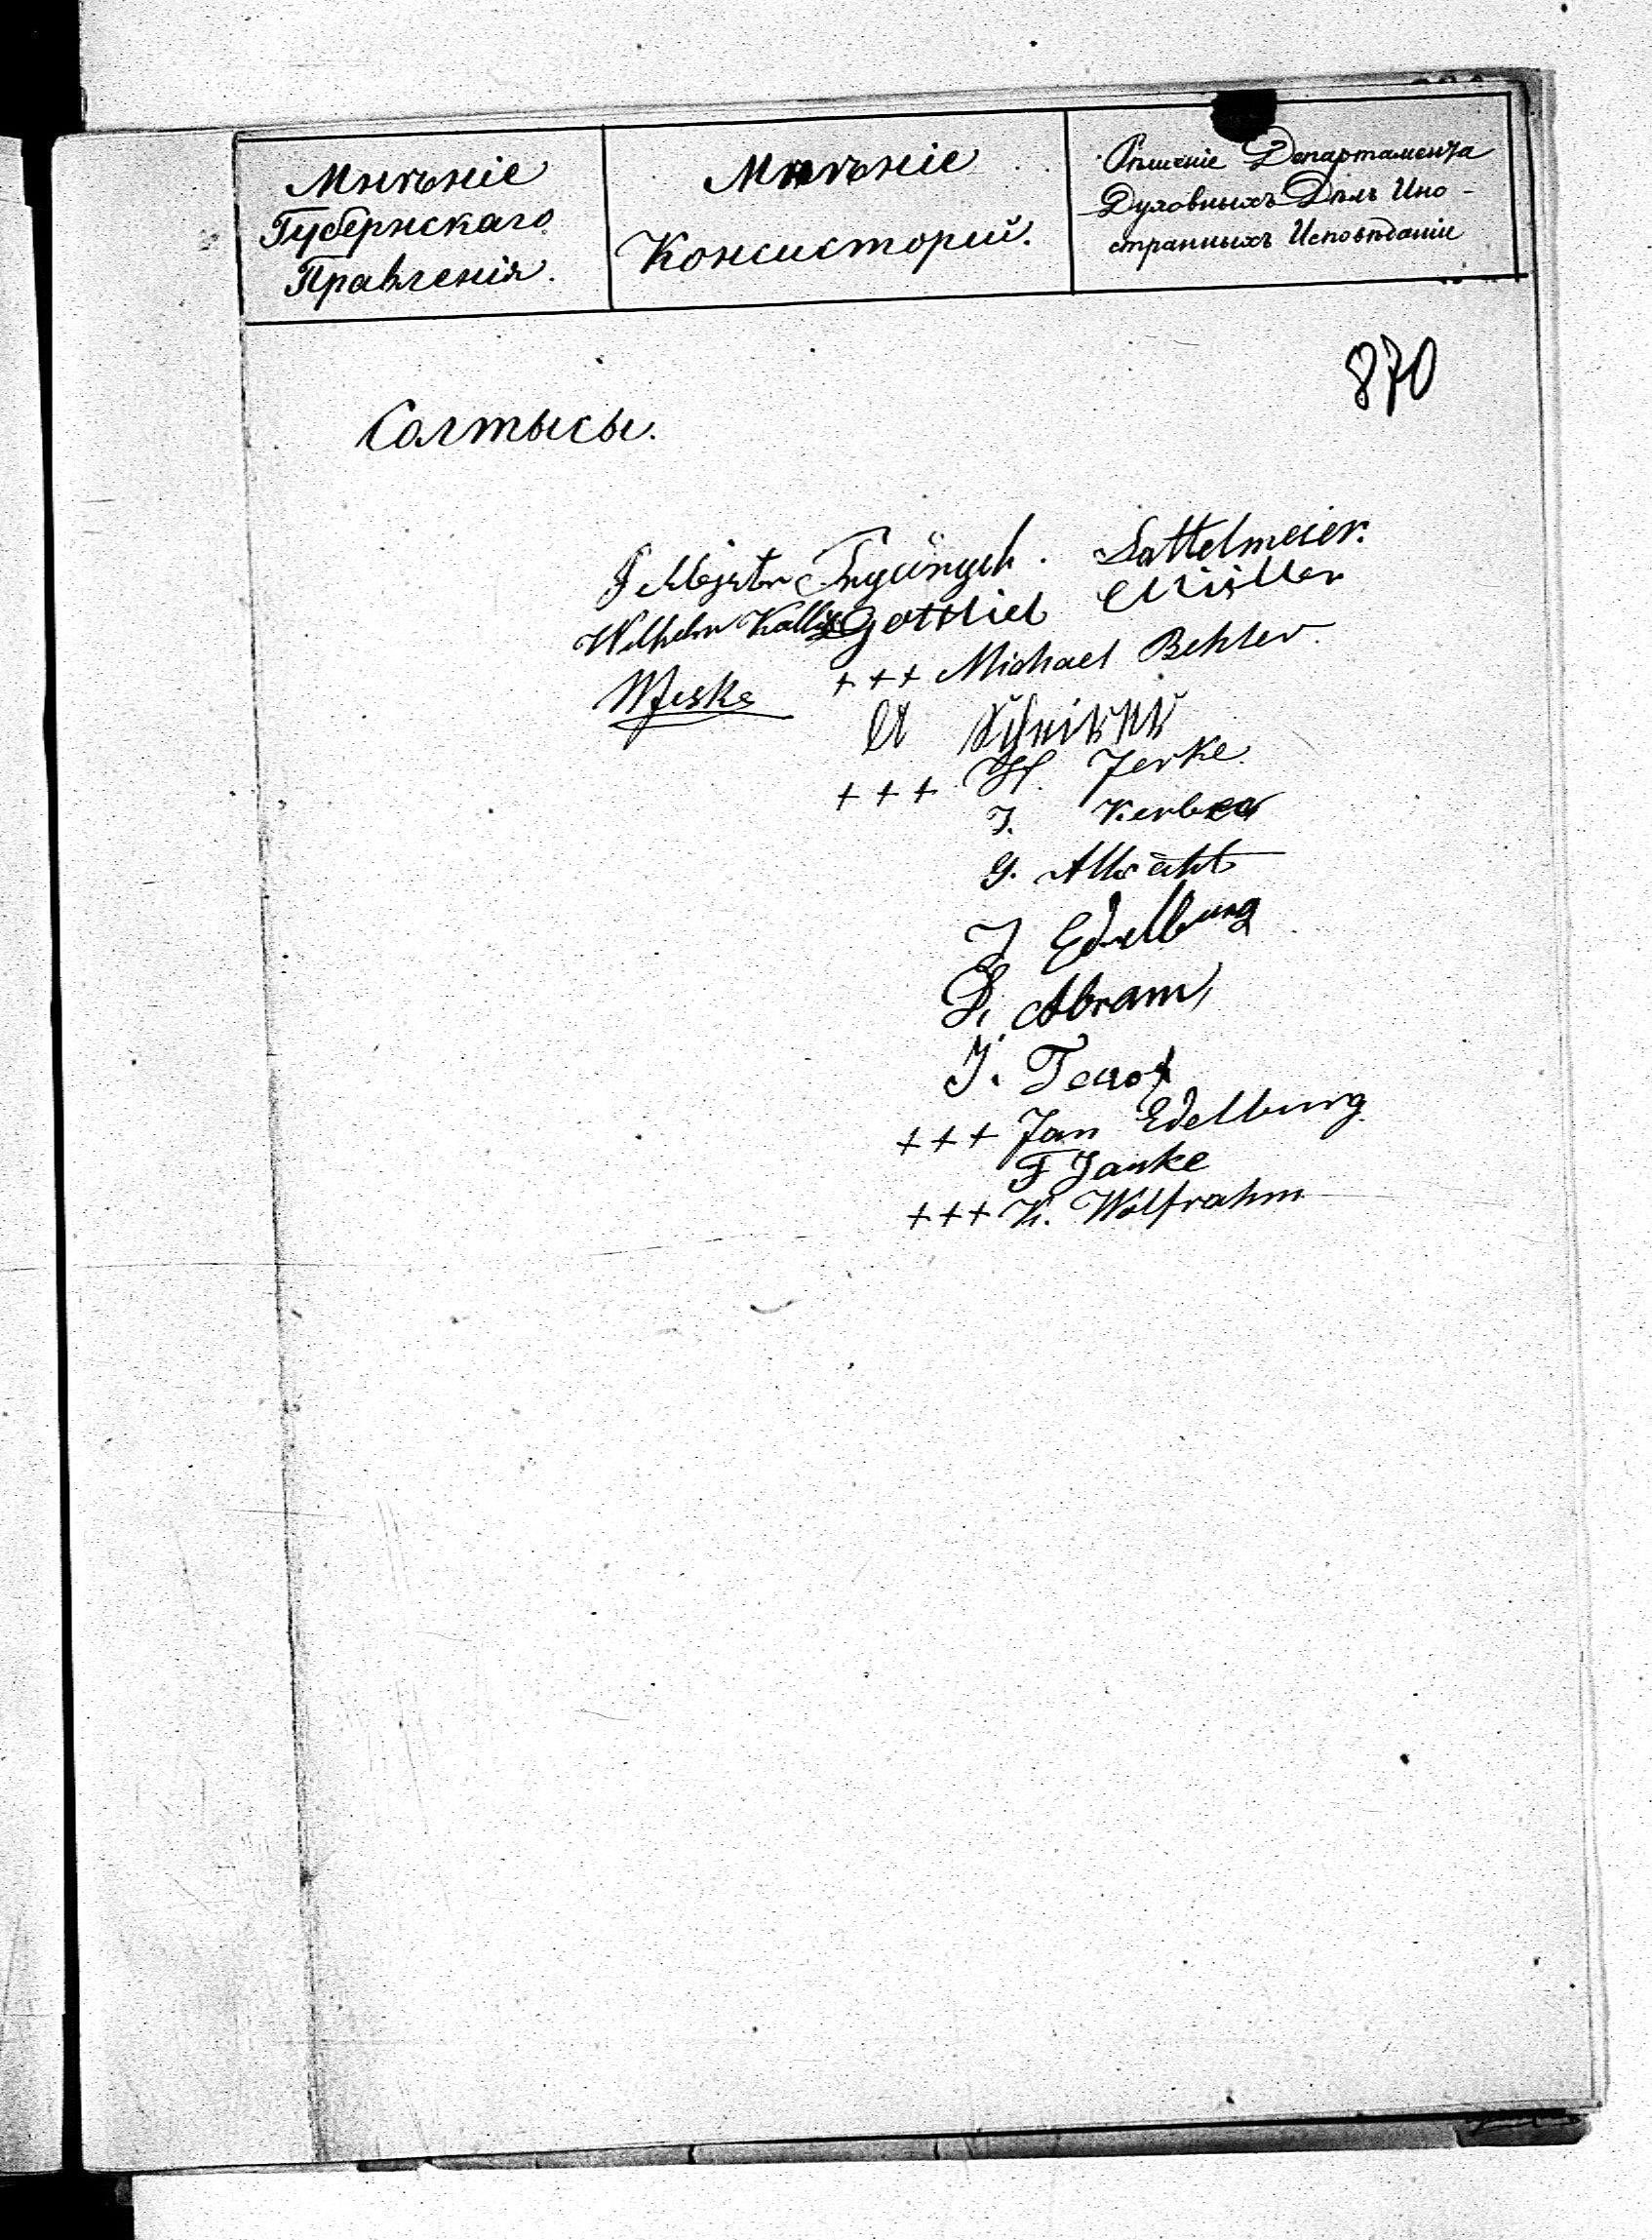 Мнѣніе
Губернскаго
Правленія.
Мнѣніе
Консисторіи.
Рѣшеніе Департамента
Духовныхъ Дѣлъ Ино-
странныхъ Исповѣданіи
870
Солтысы.
Sattelmeier.
Wilhelm Gottlieb Müller
WJeske +++ Michael Behler.
A
+++ H. Jerke
J.
G. Albrecht
J Edelburg
D. Abram
J.
+++ Jan Edelburg
F Janke
+++ K. Wolfrahm